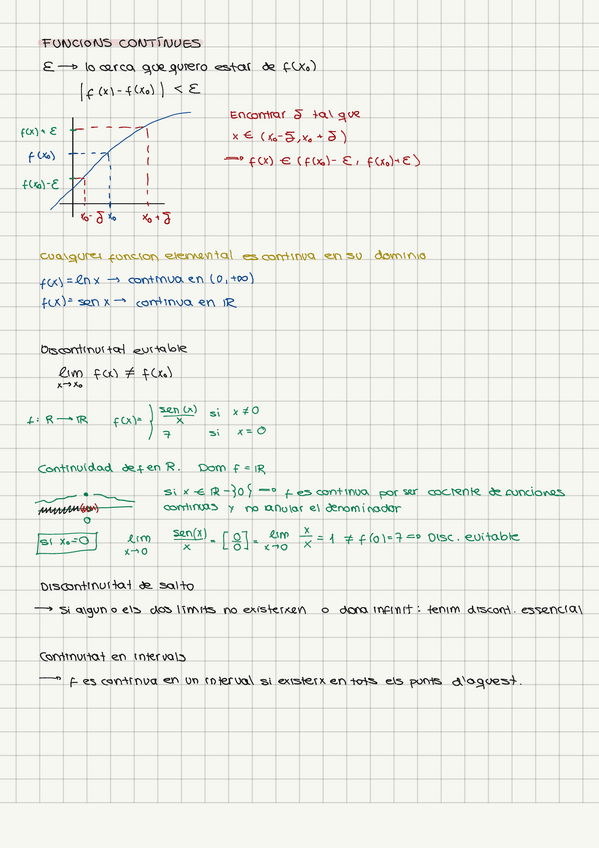 FUNCIONS CONTÍNUES
ε → lo cerca que quiero estar de f(x₀)
|f(x) - f(x₀)| < ε
Encontrar δ tal que
x ∈ (x₀-δ, x₀+δ)
→ f(x) ∈ (f(x₀)-ε, f(x₀)+ε)
f(x)+ε
f(x₀)
f(x₀)-ε
x₀-δ x₀ x₀+δ
Cualquier funcion elemental es continua en su dominio
f(x) = ln x → continua en (0,+∞)
f(x) = sen x → continua en ℝ
Discontinuitat evitable
lim f(x) ≠ f(x₀)
x→x₀
f: R → ℝ f(x)= } sen(x)/x si x≠0
7 si x=0
Continuidad de f en R. Dom f = ℝ
si x ∈ ℝ-}0{ → f es continua por ser cociente de funciones
continuas y no anular el denominador
0
si x₀=0 lim x→0 sen(x)/x = [0/0] = lim x→0 x/x = 1 ≠ f(0)=7 ⇒ Disc. evitable
Discontinuitat de salto
→ Si algun o els dos límits no existeixen o dona infinit: tenim discont. essencial
Continuitat en intervals
→ f es continua en un interval si existeix en tots els punts d'aquest.